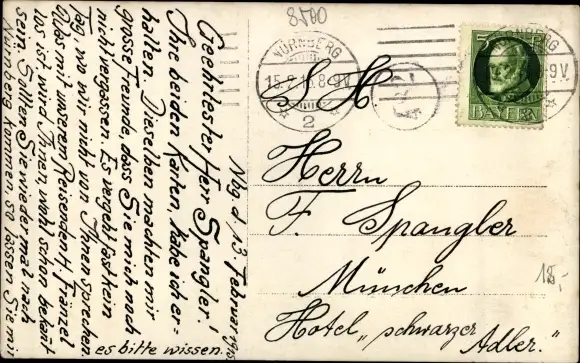 Nbg. d. 13. Februar 1915
Geehrtester Herr Spangler!
Ihre beiden Karten, habe ich er-
halten. Dieselben machten mir
grosse Freunde, dass Sie mich noch
nicht vergessen. Es vergeht fast kein
Tag, wo wir nicht von Ihnen sprechen.
Was mit unserem Reisendent. Fränzel
los ist, wird Ihnen wohl schon bekannt
sein. Sollten Sie wieder mal nach
Nürnberg kommen, so lassen Sie mi
es bitte wissen.
8500
NÜRNBERG
8-9V
2
9V
5
BAYERN
S. H.
Herrn
F. Spangler
München
Hotel „schwarzer
Adler."
18,-